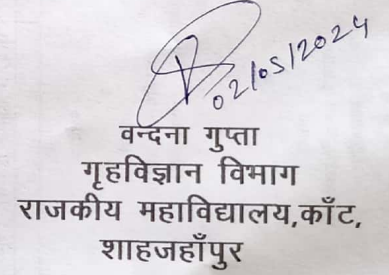 02/05/2024
वन्दना गुप्ता
गृहविज्ञान विभाग
राजकीय महाविद्यालय,काँट,
शाहजहाँपुर